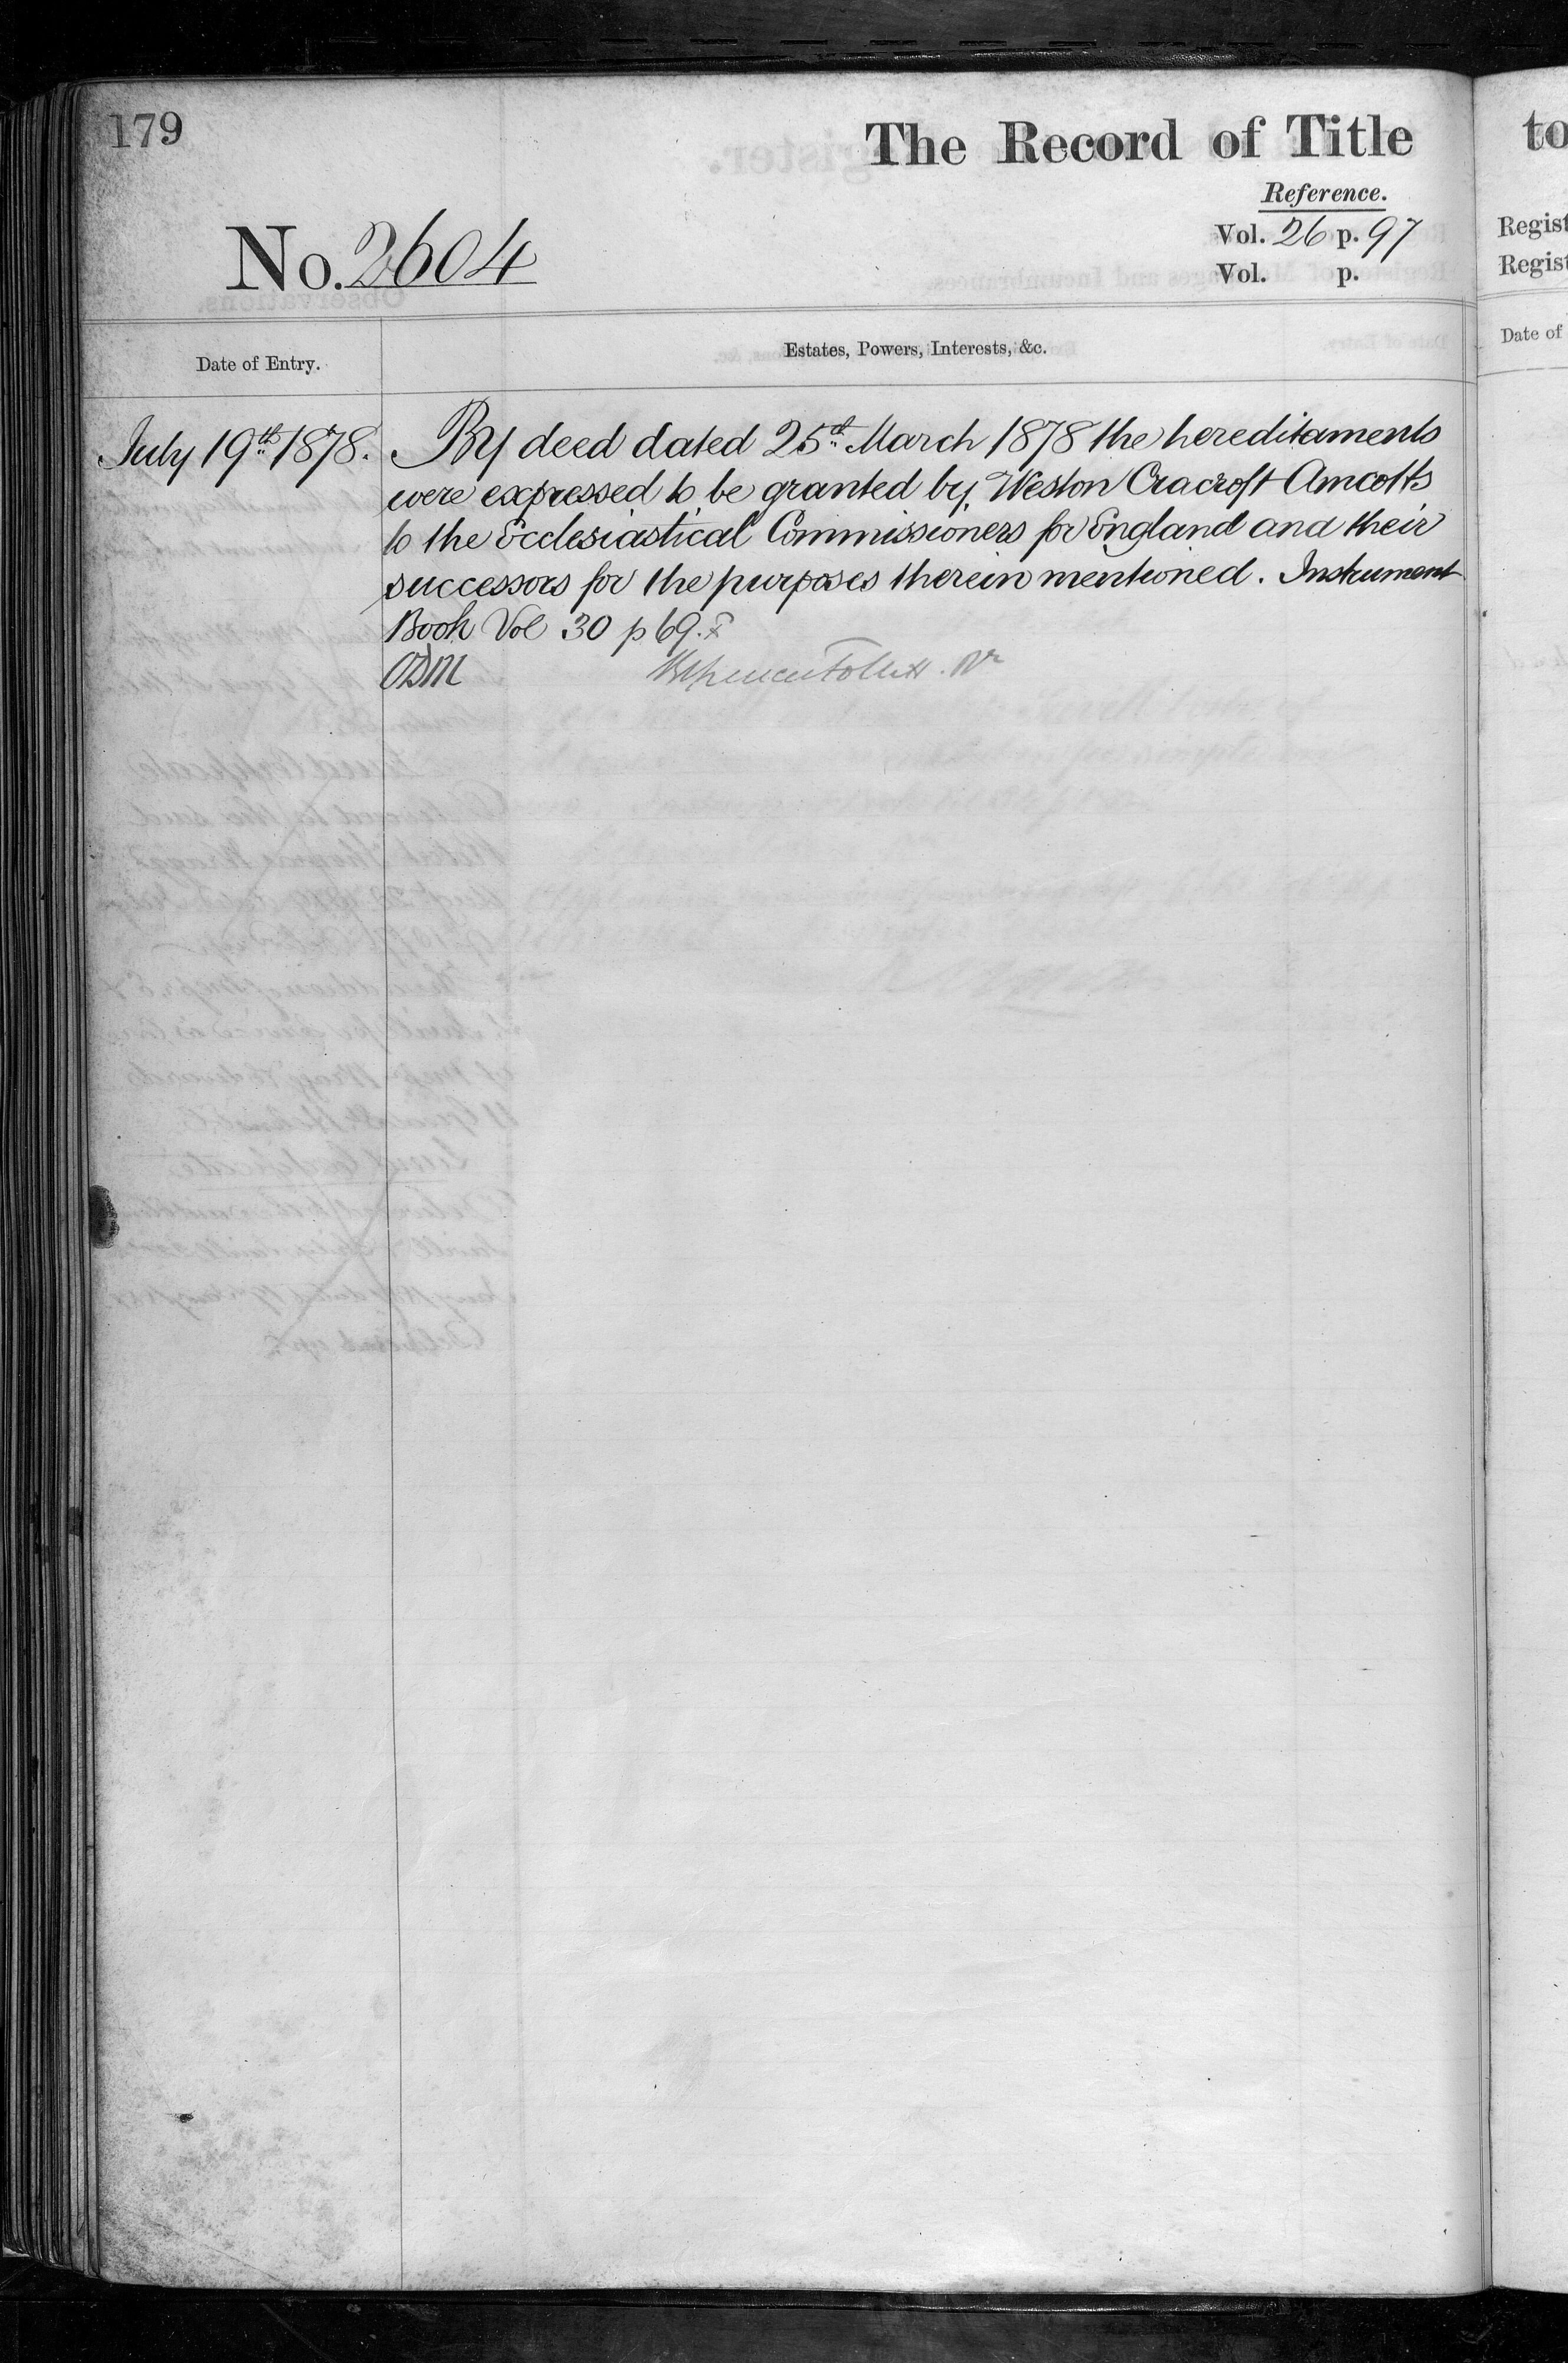 179
The Record of Title
Reference.
No. 2604
Vol. 26 p. 97
Vol. p.
Date of Entry.
Estates, Powers, Interests, &c.
July 19th 1878.
By deed dated 25th March 1878 the hereditaments
were expressed to be granted by Weston Cracroft Amcotts
to the Ecclesiastical Commissioners for England and their
successors for the purposes therein mentioned. Instrument
Book Vol 30 p 69.
to
Regist
Regist
Date of